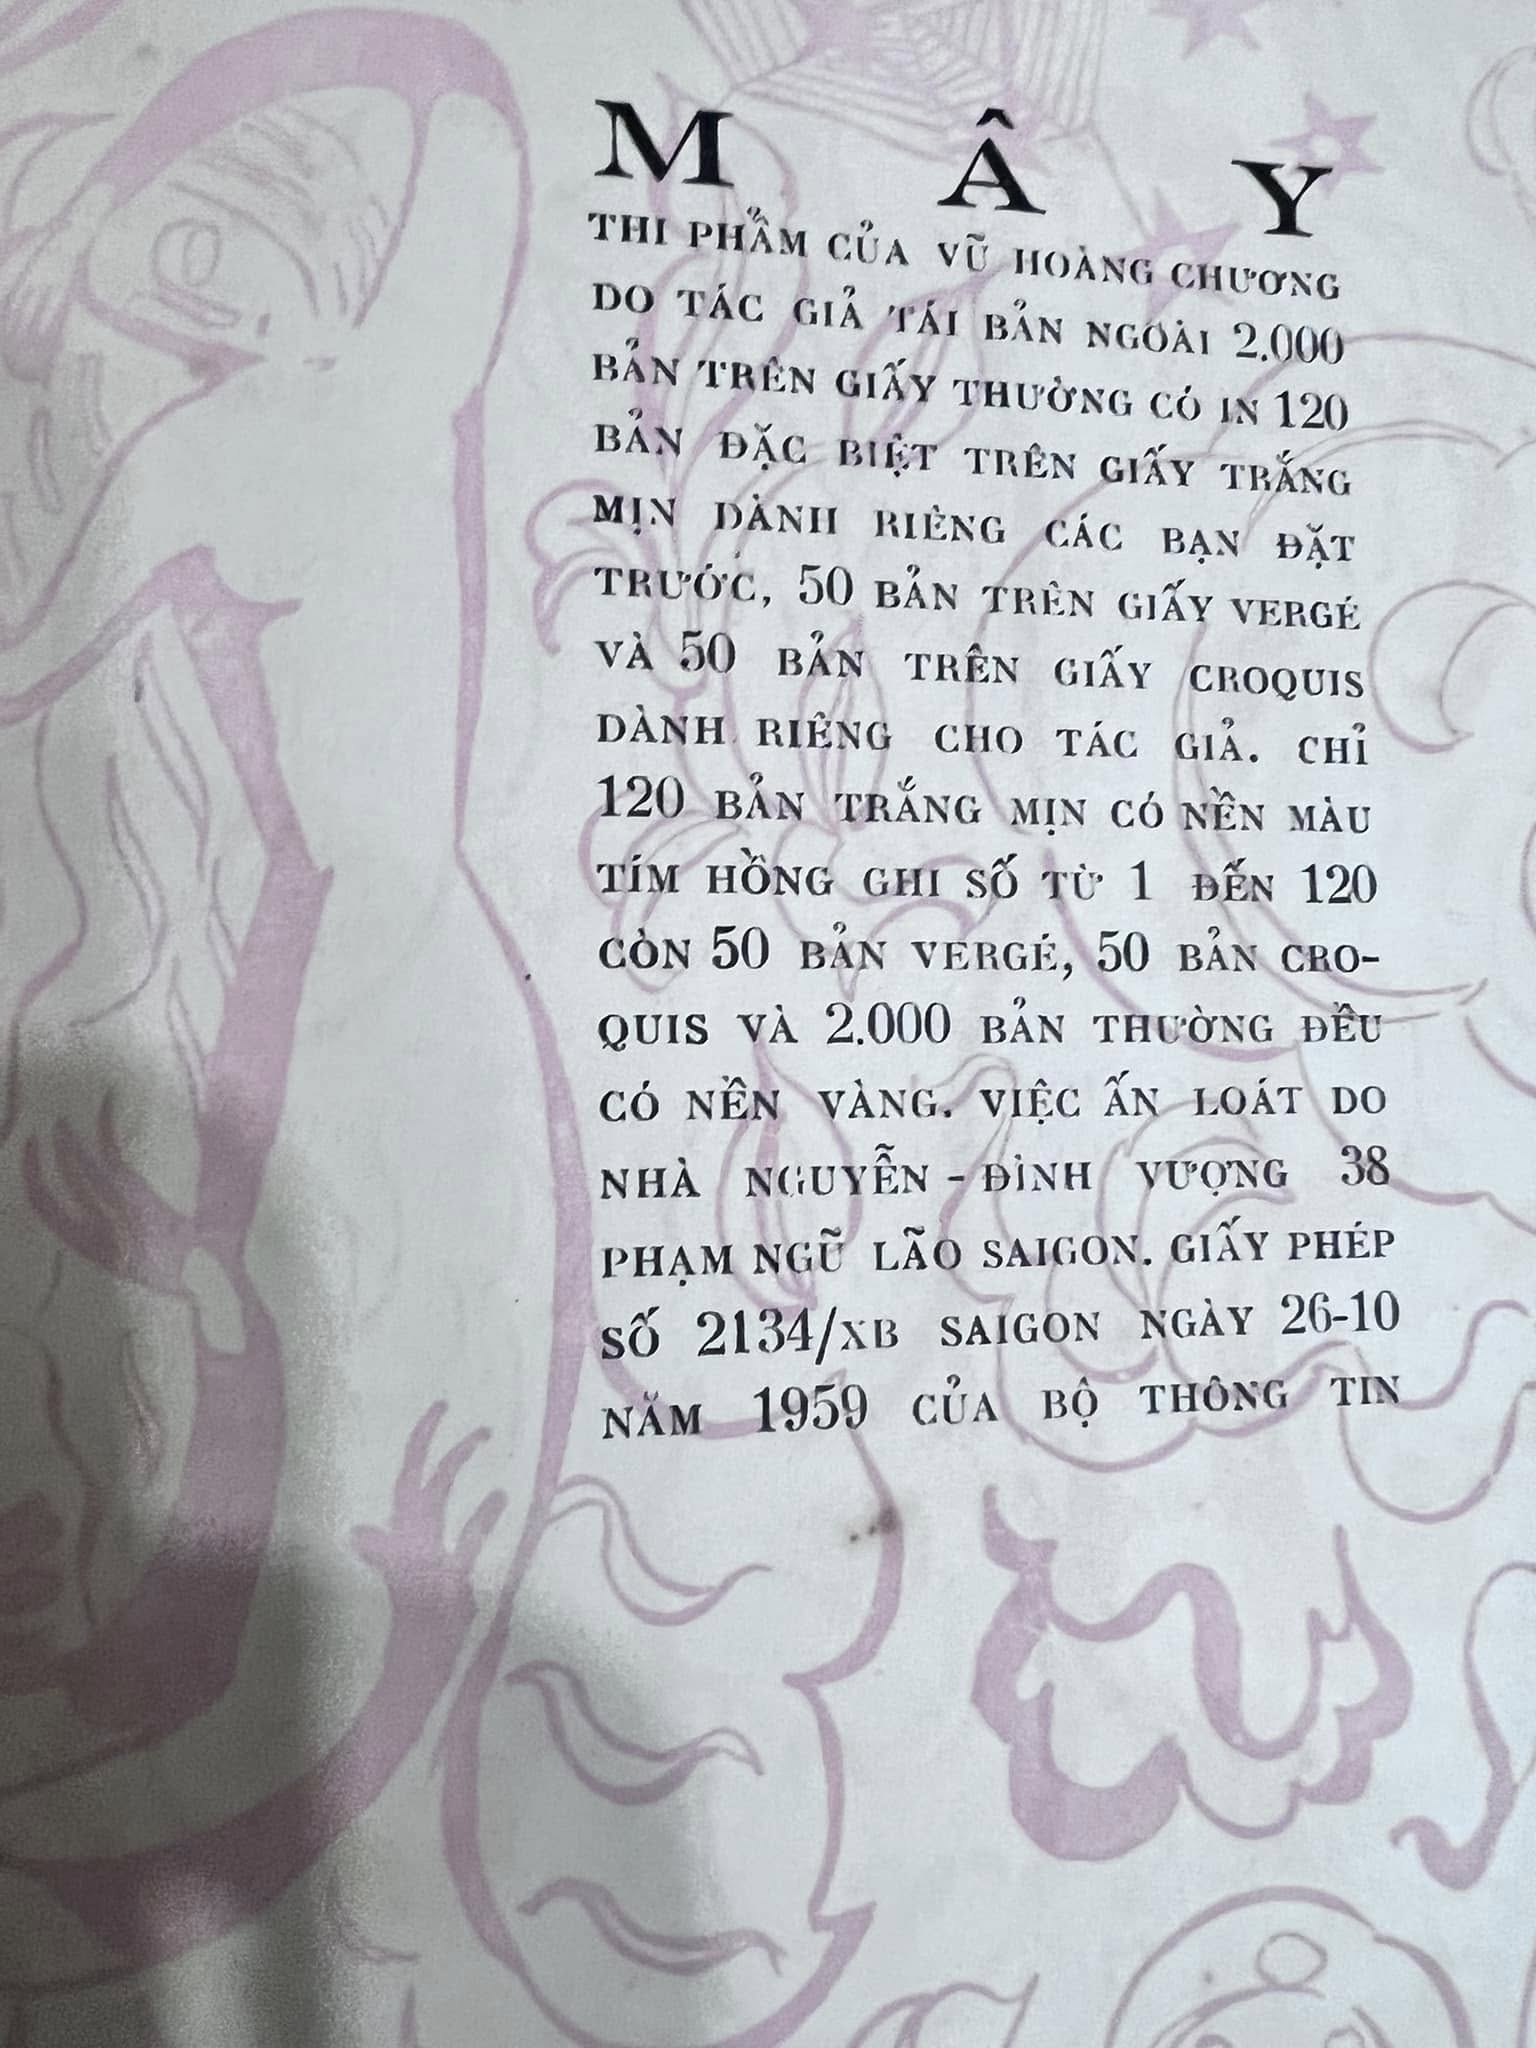 MÂY
THI PHẨM CỦA VŨ HOÀNG CHƯƠNG
DO TÁC GIẢ TÁI BẢN NGOÀI 2.000
BẢN TRÊN GIẤY THƯỜNG CÓ IN 120
BẢN ĐẶC BIỆT TRÊN GIẤY TRẮNG
MỊN DÀNH RIÊNG CÁC BẠN ĐẶT
TRƯỚC, 50 BẢN TRÊN GIẤY VERGÉ
VÀ 50 BẢN TRÊN GIẤY CROQUIS
DÀNH RIÊNG CHO TÁC GIẢ. CHỈ
120 BẢN TRẮNG MỊN CÓ NỀN MÀU
TÍM HỒNG GHI SỐ TỪ 1 ĐẾN 120
CÒN 50 BẢN VERGÉ, 50 BẢN CRO-
QUIS VÀ 2.000 BẢN THƯỜNG ĐỀU
CÓ NỀN VÀNG. VIỆC ẤN LOÁT DO
NHÀ NGUYỄN - ĐÌNH VƯỢNG 38
PHẠM NGŨ LÃO SAIGON. GIẤY PHÉP
SỐ 2134/XB SAIGON NGÀY 26-10
NĂM 1959 CỦA BỘ THÔNG TIN